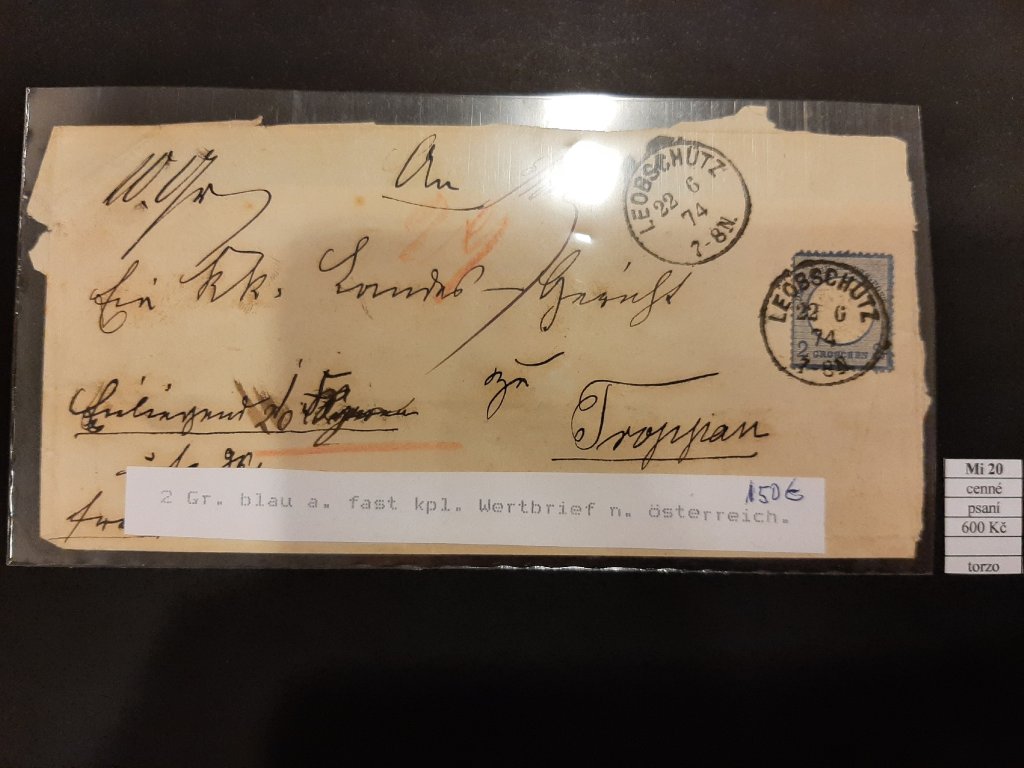 10. Gr
An
LEOBSCHÜTZ
22 6
74
7-8N.
Ein kk. Landes-Gericht
LEOBSCHÜTZ
22 6
74
7-8N
2 GROSCHEN 2
Einliegend
zu
Troppau
2 Gr. blau a. fast kpl. Wertbrief n. österreich.
150€
Mi 20
cenné
psaní
600 Kč
torzo